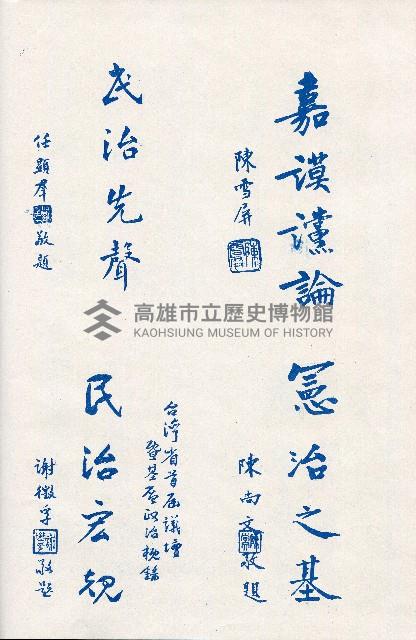 嘉謨讜論
陳雪屏
民治先聲
任顯群敬題
憲治之基
陳尚文敬題
台灣省首屆議壇
暨基層政治概錄
民治宏規
謝徵孚敬題
高雄市立歷史博物館
KAOHSIUNG MUSEUM OF HISTORY